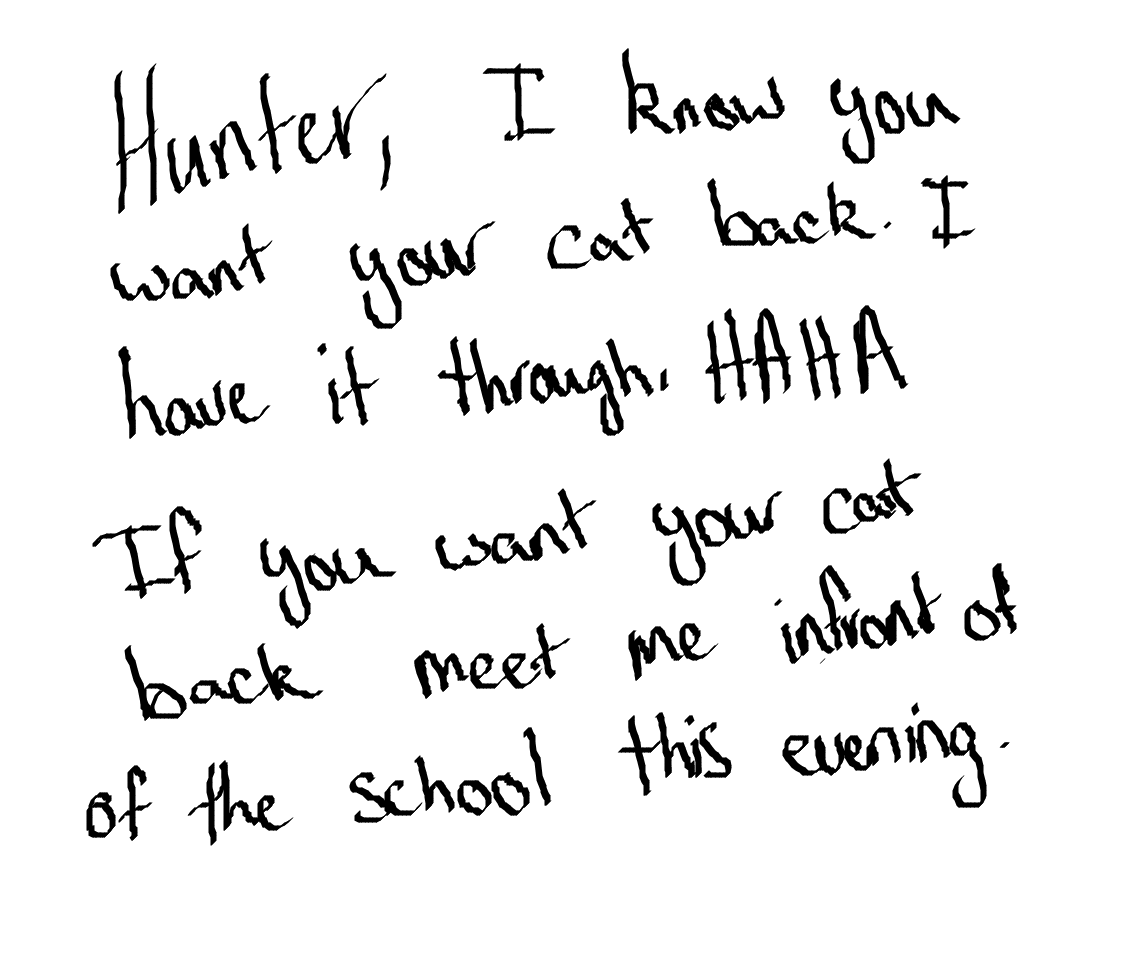 Hunter, I know you
want your cat back. I
have it through. HAHA
If you want your cat
back meet me infront of
of the school this evening.